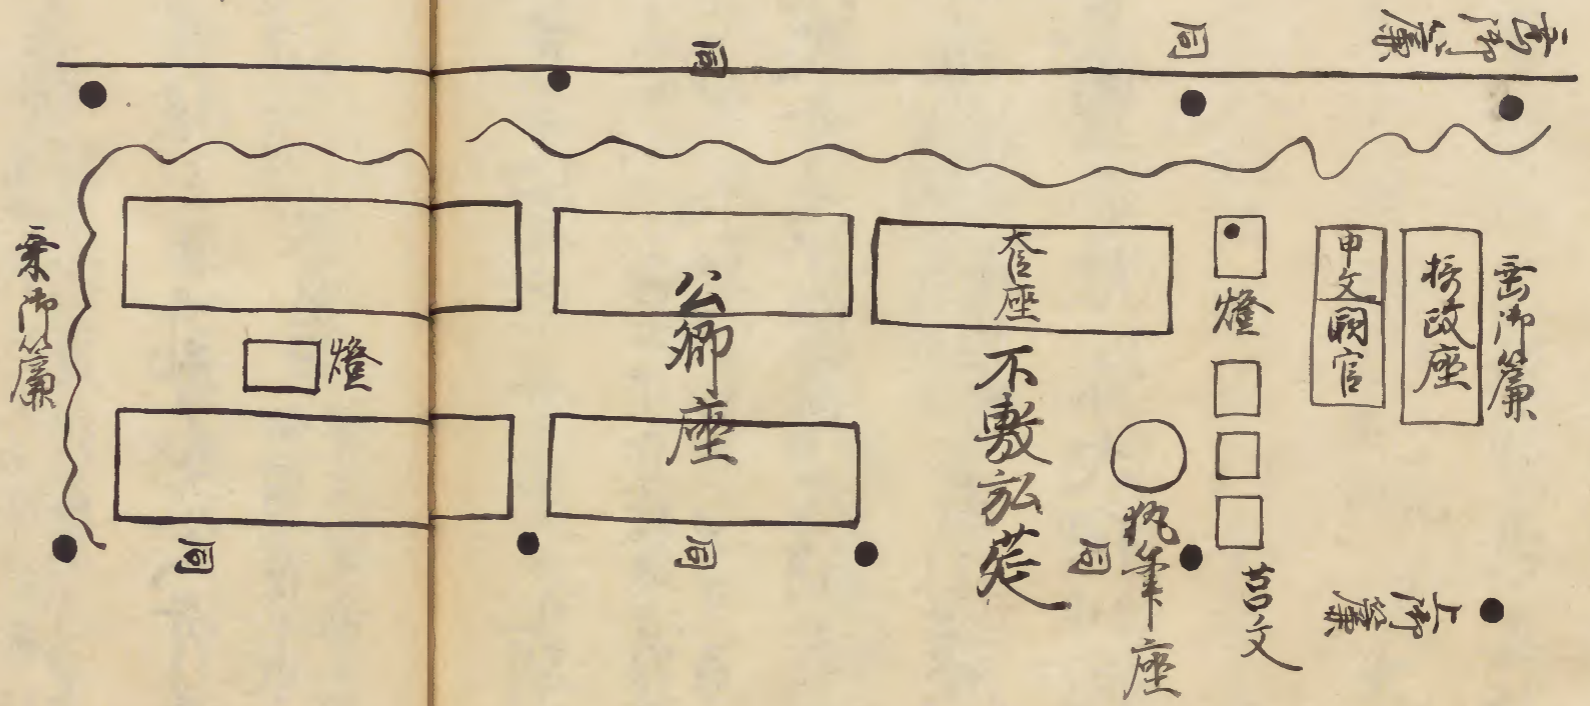 垂御簾
同
同
垂御簾
摂政座
申文
闕官
燈
大臣座
公卿座
不敷弘莚
執筆座
莒文
上御簾
同
同
同
燈
垂御簾